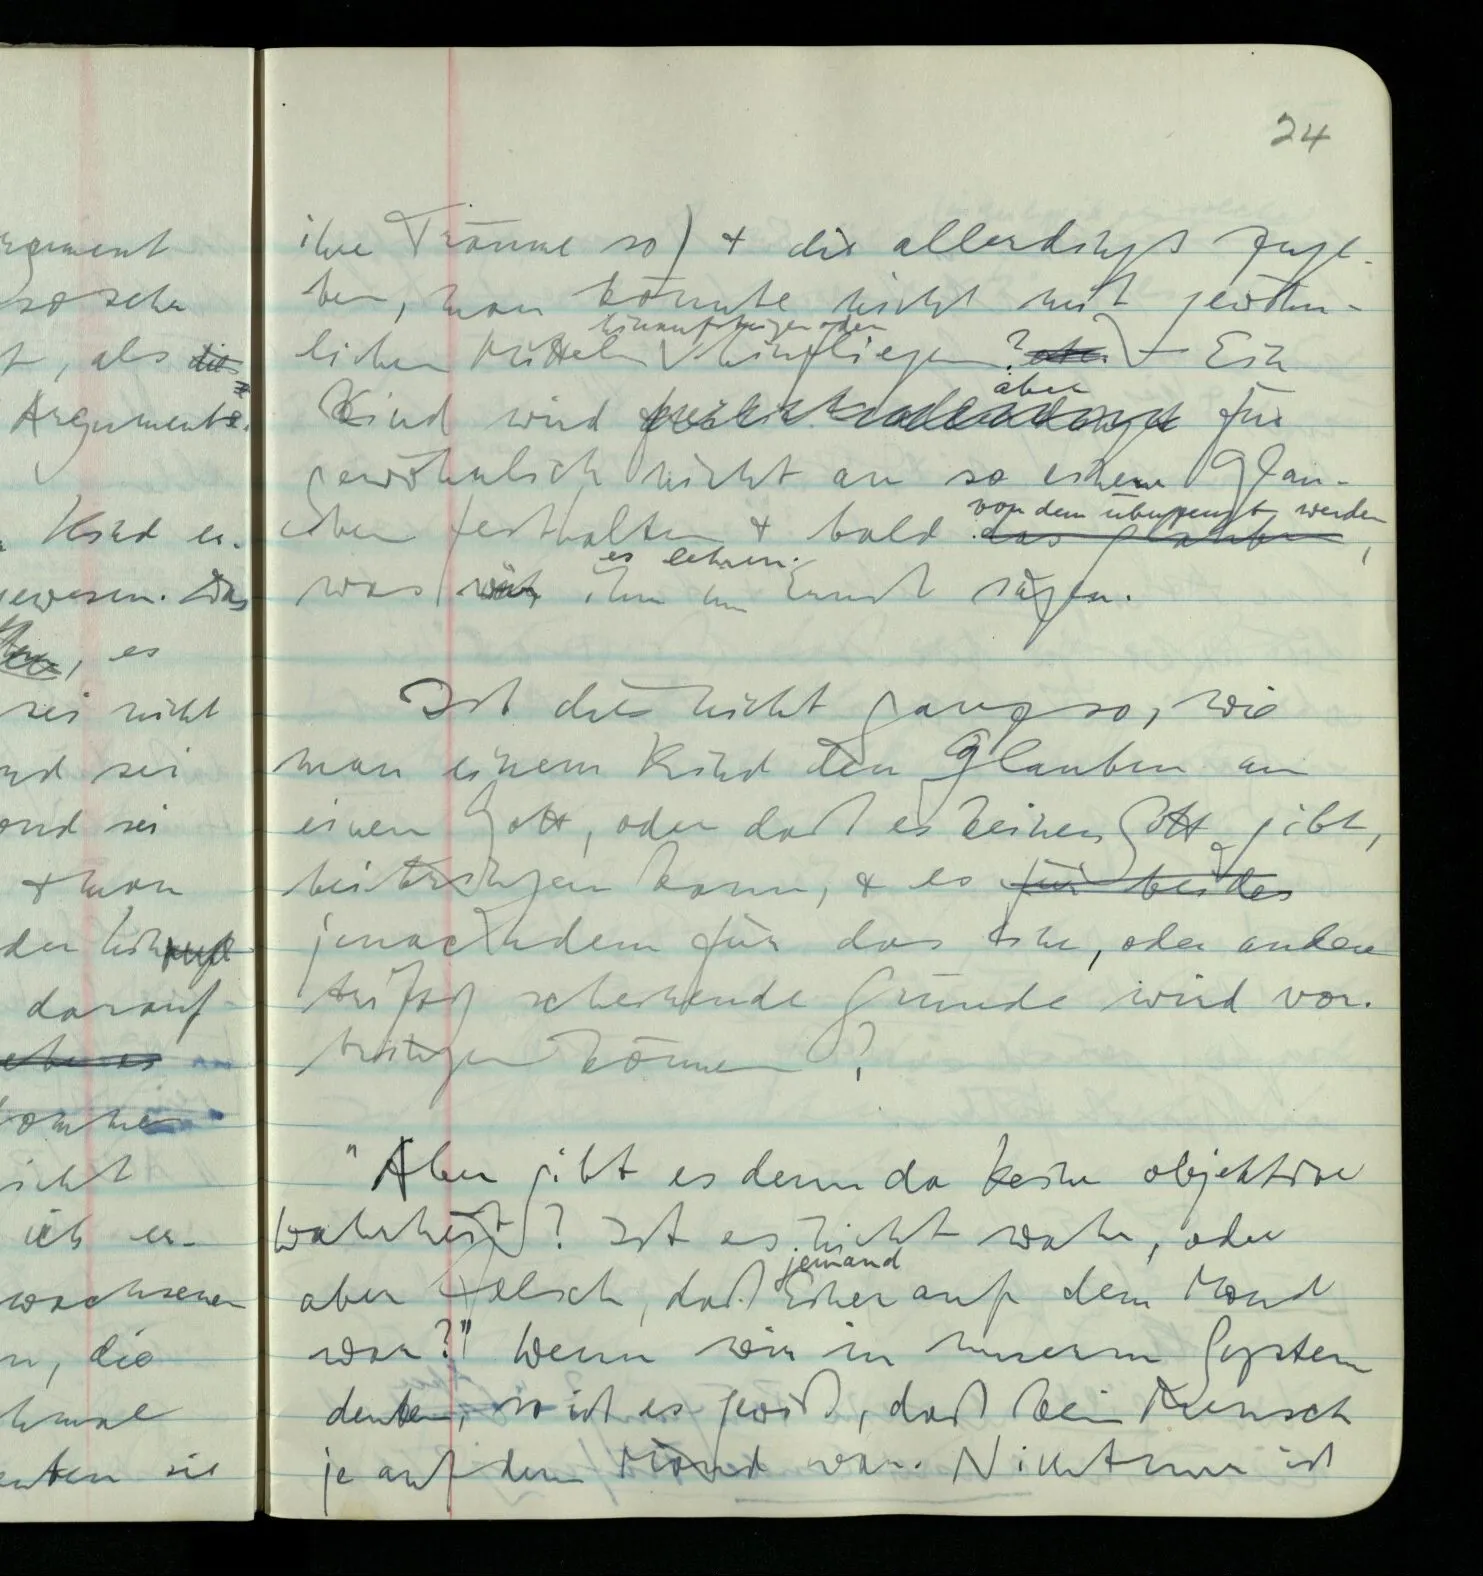 rgument
so sehr
t, als die
Arguments.
Kind er-
gewesen. Das
, es
sei nicht
nd sei
ond sei
& man
der hinauf
darauf
komme
nicht
ich er-
wachsenen
n, die
hmal
enten sie
24
ihre Träume so) & die allerdings zuge-
ben, man könnte nicht mit gewöhn-
hinaufsteigen oder
lichen Mitteln hinfliegen? oder – Ein
aber
Kind wird für
gewöhnlich nicht an so einem Glau-
von dem überzeugt werden
ben festhalten & bald das glauben,
es lehren.
was wir ihm im Ernst sagen.
Ist dies nicht ganz so, wie
man einem Kind den Glauben an
einen Gott, oder daß es keinen Gott gibt,
beibringen kann, & es für beides
jenachdem für das eine, oder andere
triftig scheinende Gründe wird vor-
bringen können?
"Aber gibt es denn da keine objektive
Wahrheit? Ist es nicht wahr, oder
jemand
aber falsch, daß Einer auf dem Mond
war?" Wenn wir in unserm System
denken, so ist es gewiß, daß kein Mensch
je auf dem Mond war. Nicht nur ist